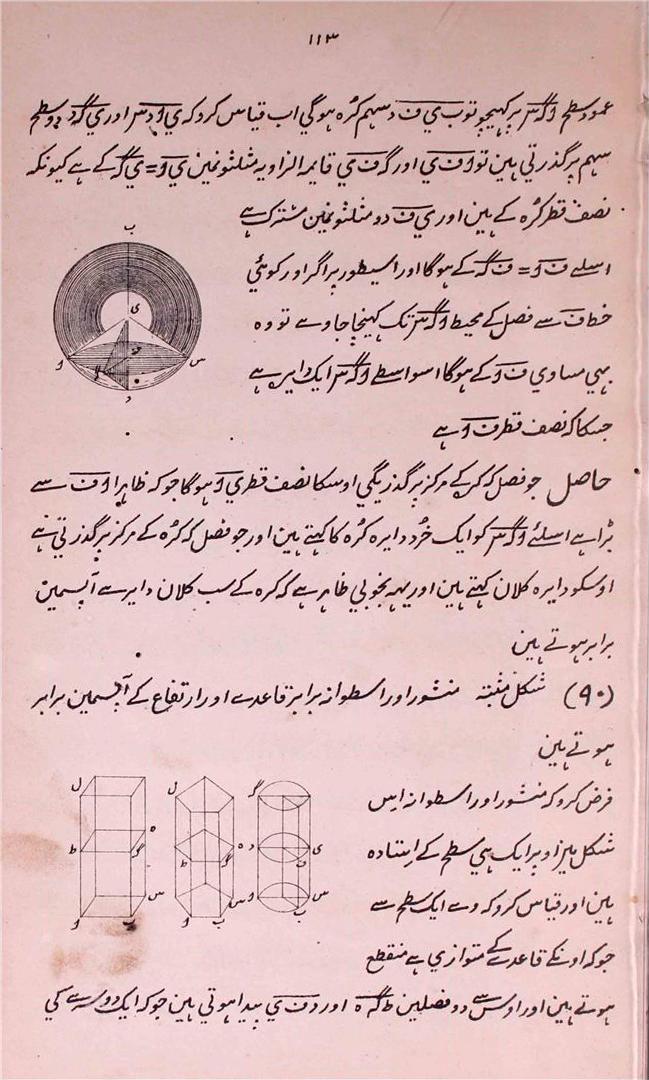 ۱۱۳
عمود سطح وگس پر کھینچو تو ب ي ف د سہم کرہ ہوگي اب قیاس کرو کہ ي و د س اور ي گ د دو سطح
سہم پر گذرتي ہین تو و ف ي اور گ ف ي قایمہ الزاویہ مثلثونمین ي و = ي گ کے ہے کیونکہ
نصف قطر کرہ کے ہین اور ي ف دو مثلثونمین مشترک ہے
اسلئے ف و = ف گ کے ہوگا اور اسیطور پر اگر اور کوئي
خط ف سے فصل کے محیط و گ س تک کھینچا جاوے تو وہ
بہي مساوي ف و کے ہوگا اسواسطے و گ س ایک دایرہ ہے
جسکا کہ نصف قطر ف و ہے
حاصل جو فصل کہ کرہ کے مرکز پر گذریگي اوسکا نصف قطر ي و ہوگا جو کہ ظاہرا و ف سے
بڑا ہے اسلئے و گ س کو ایک خُرد دایرہ کرہ کا کہتے ہین اور جو فصل کہ کرہ کے مرکز پر گذرتي ہے
اوسکو دایرہ کلان کہتے ہین اور یہہ بخوبي ظاہر ہے کہ کرہ کے سب کلان دایرے آپسمین
برابر ہوتے ہین
ب
ي
ف
و
گ
س
د
(۹۰) شکل مثبتہ منشور اور اسطوانہ برابر قاعدے اور ارتفاع کے آپسمین برابر
ہوتے ہین
فرض کرو کہ منشور اور اسطوانہ اس
شکل مین اوپر ایک ہي سطح کے استادہ
ہین اور قیاس کرو کہ وے ایک سطح سے
جو کہ اونکے قاعدے کے متوازي ہے منقطع
ہوتے ہین اور اوس سے دو فصلین ط گ ہ اور د ف ي پیدا ہوتي ہین جو کہ ایک دوسرے کي
ل
ہ
ط
گ
س
و
ب
ل
ہ
ط
گ
س
و
ب
گ
د
ي
ف
و
س
ب